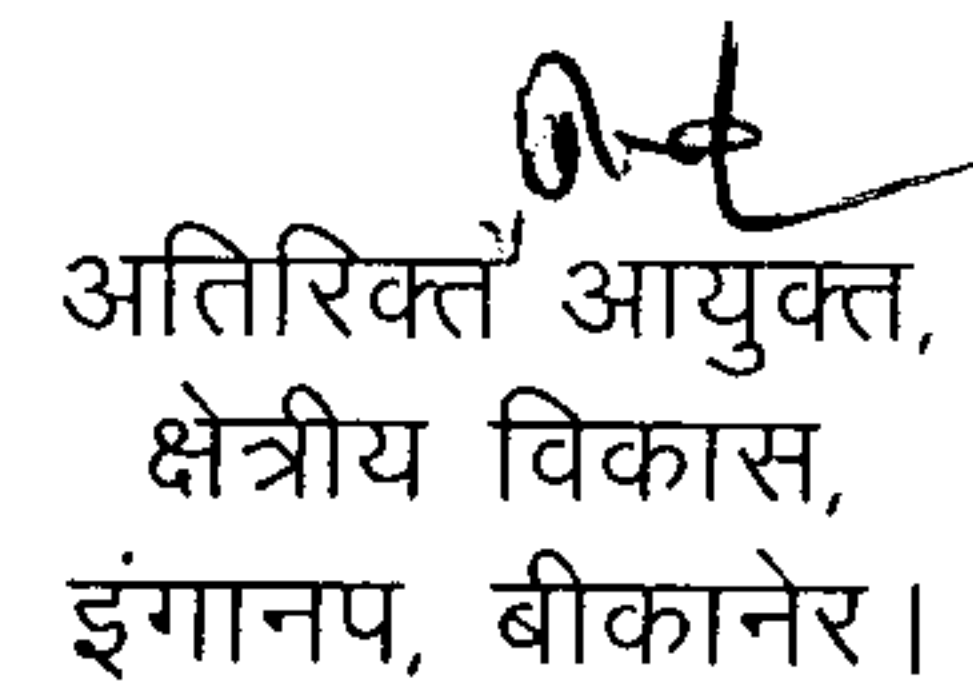 अतिरिक्त आयुक्त,
क्षेत्रीय विकास,
इंगानप, बीकानेर।